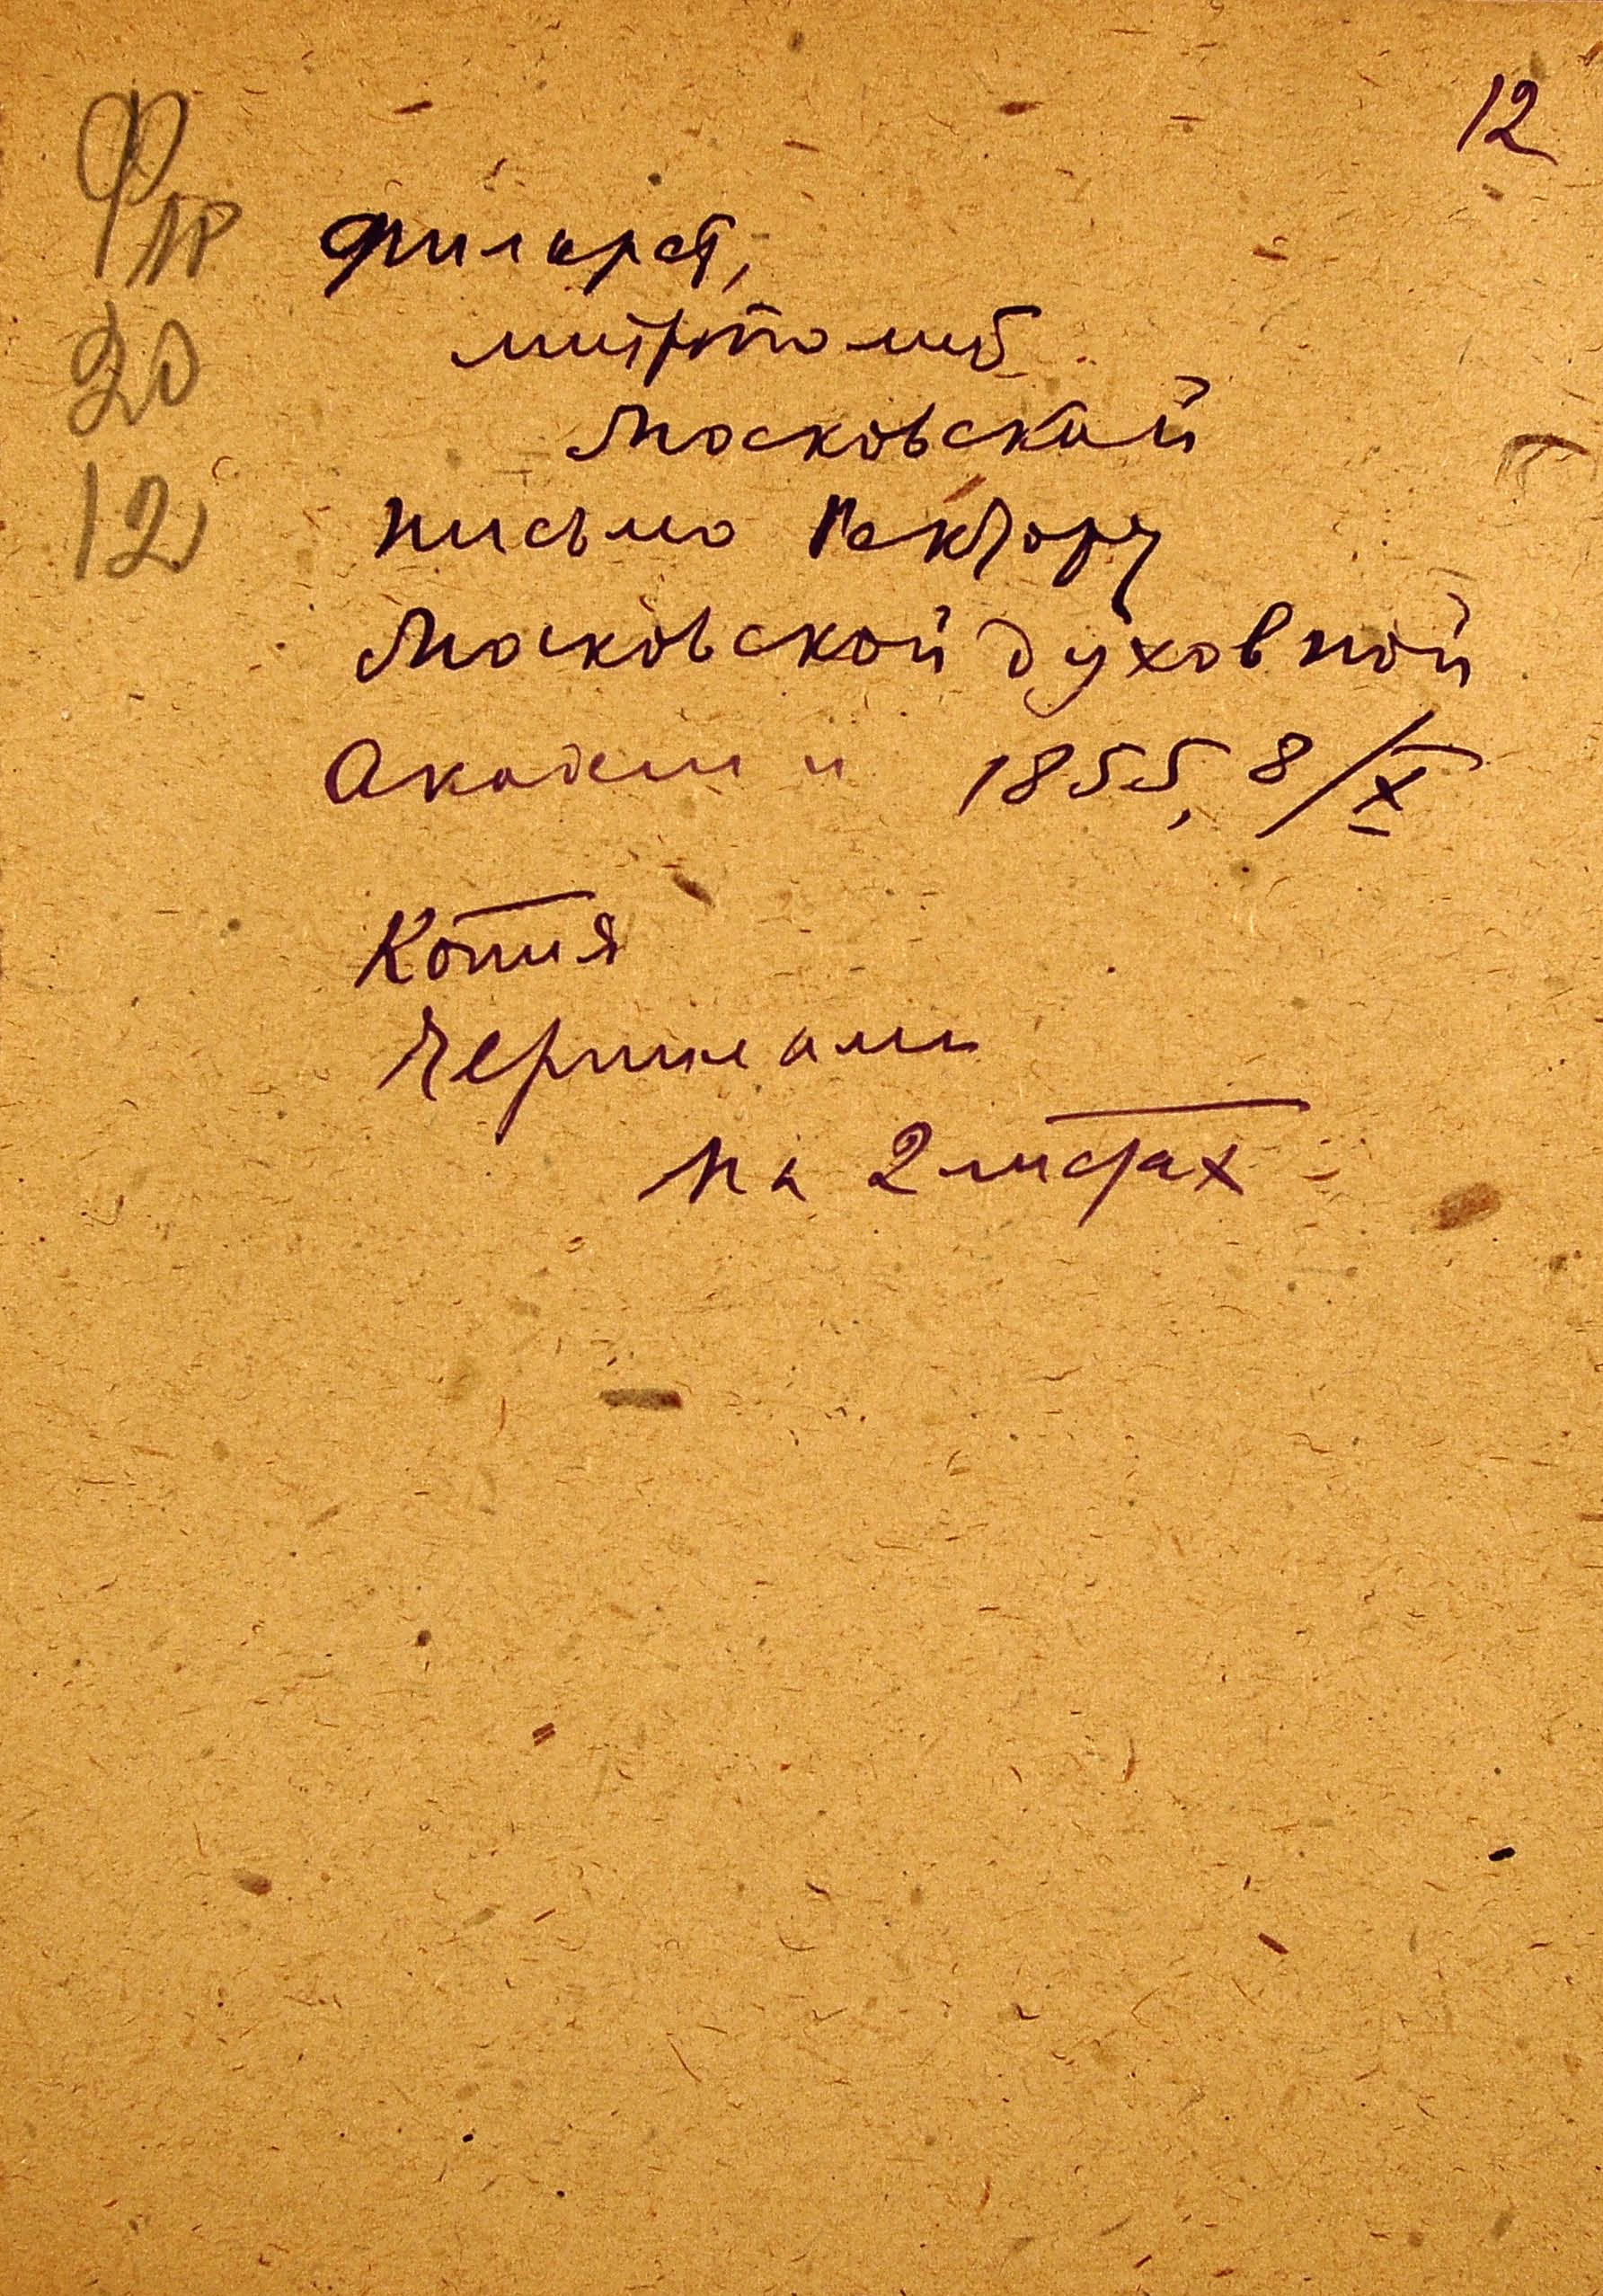 12
Ф ПР
20
12
Филарет,
митрополит
Московский
письмо Ректору
Московской духовной
Академии 1855, 8/X
Копия
чернилами
на 2 листах